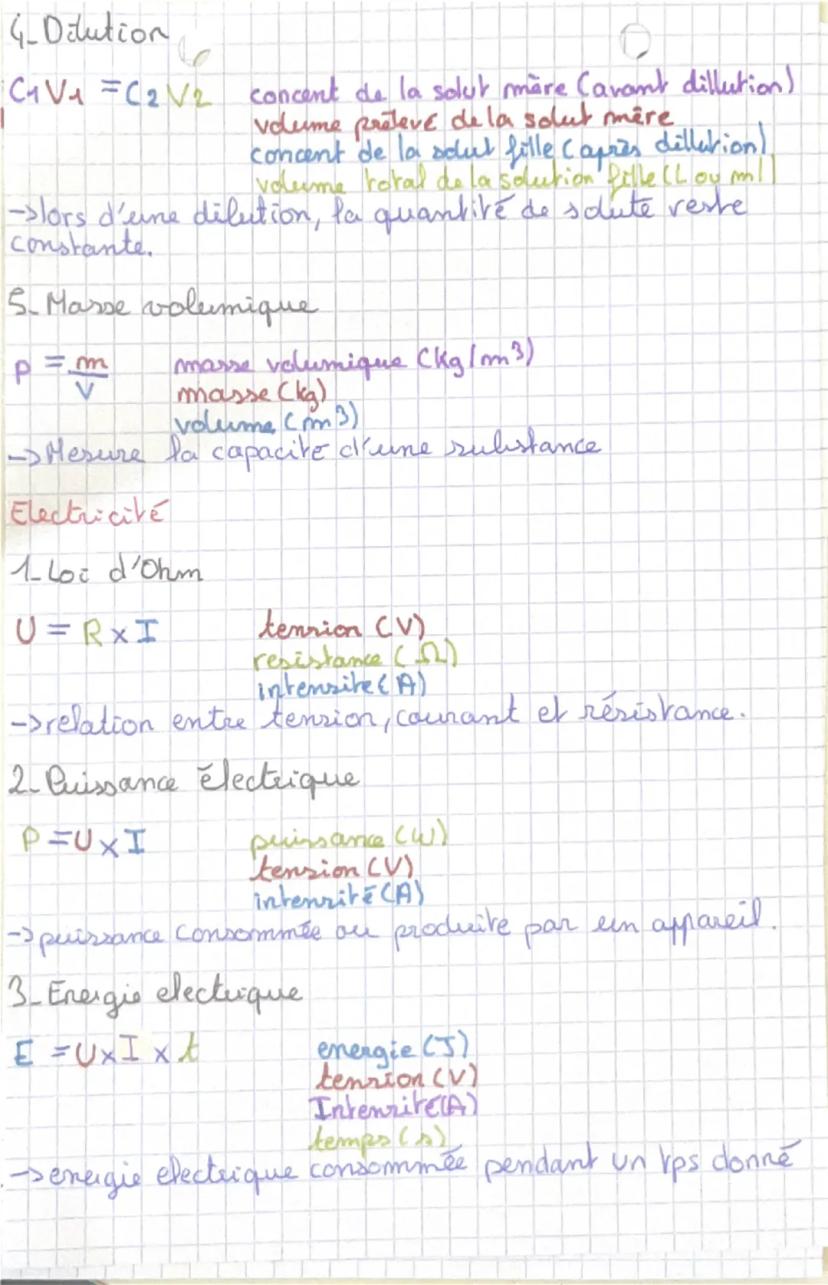 4_ Dilution
C1V1 = C2V2 concent de la solut mère (avant dillution)
volume prélevé de la solut mère
concent de la solut fille (après dillution)
volume total de la solution fille (L ou ml)
->lors d'une dilution, la quantité de soluté reste
constante.
5_ Masse volumique
ρ = m/V masse volumique (kg/m3)
masse (kg)
volume (m3)
->Mesure la capacité d'une substance
Electricité
1_ Loi d'Ohm
U = R x I tension (V)
resistance (Ω)
intensite (A)
->relation entre tension, courant et résistance.
2_ Puissance électrique
P = U x I puissance (W)
tension (V)
intensité (A)
->puissance consommée ou produite par un appareil.
3_ Energie electrique
E = U x I x t energie (J)
tension (V)
Intensité (A)
temps (s)
->energie electrique consommée pendant un tps donné